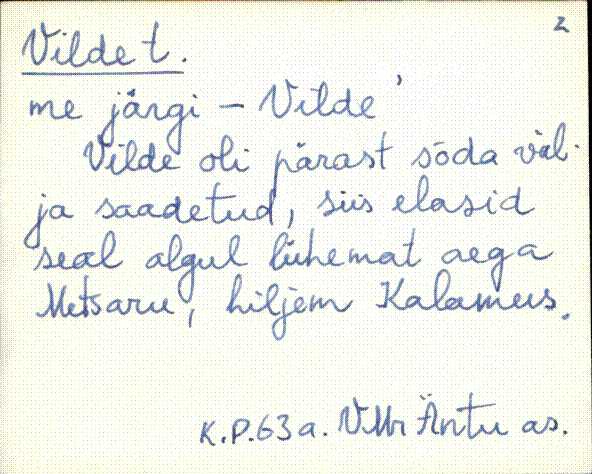 2
Vilde t.
me järgi – Vilde'
Vilde oli pärast sõda väl-
ja saadetud, siis elasid
seal algul lühemat aega
Metsaru, hiljem Kalamus.
K.P.63 a. VMr Äntu as.